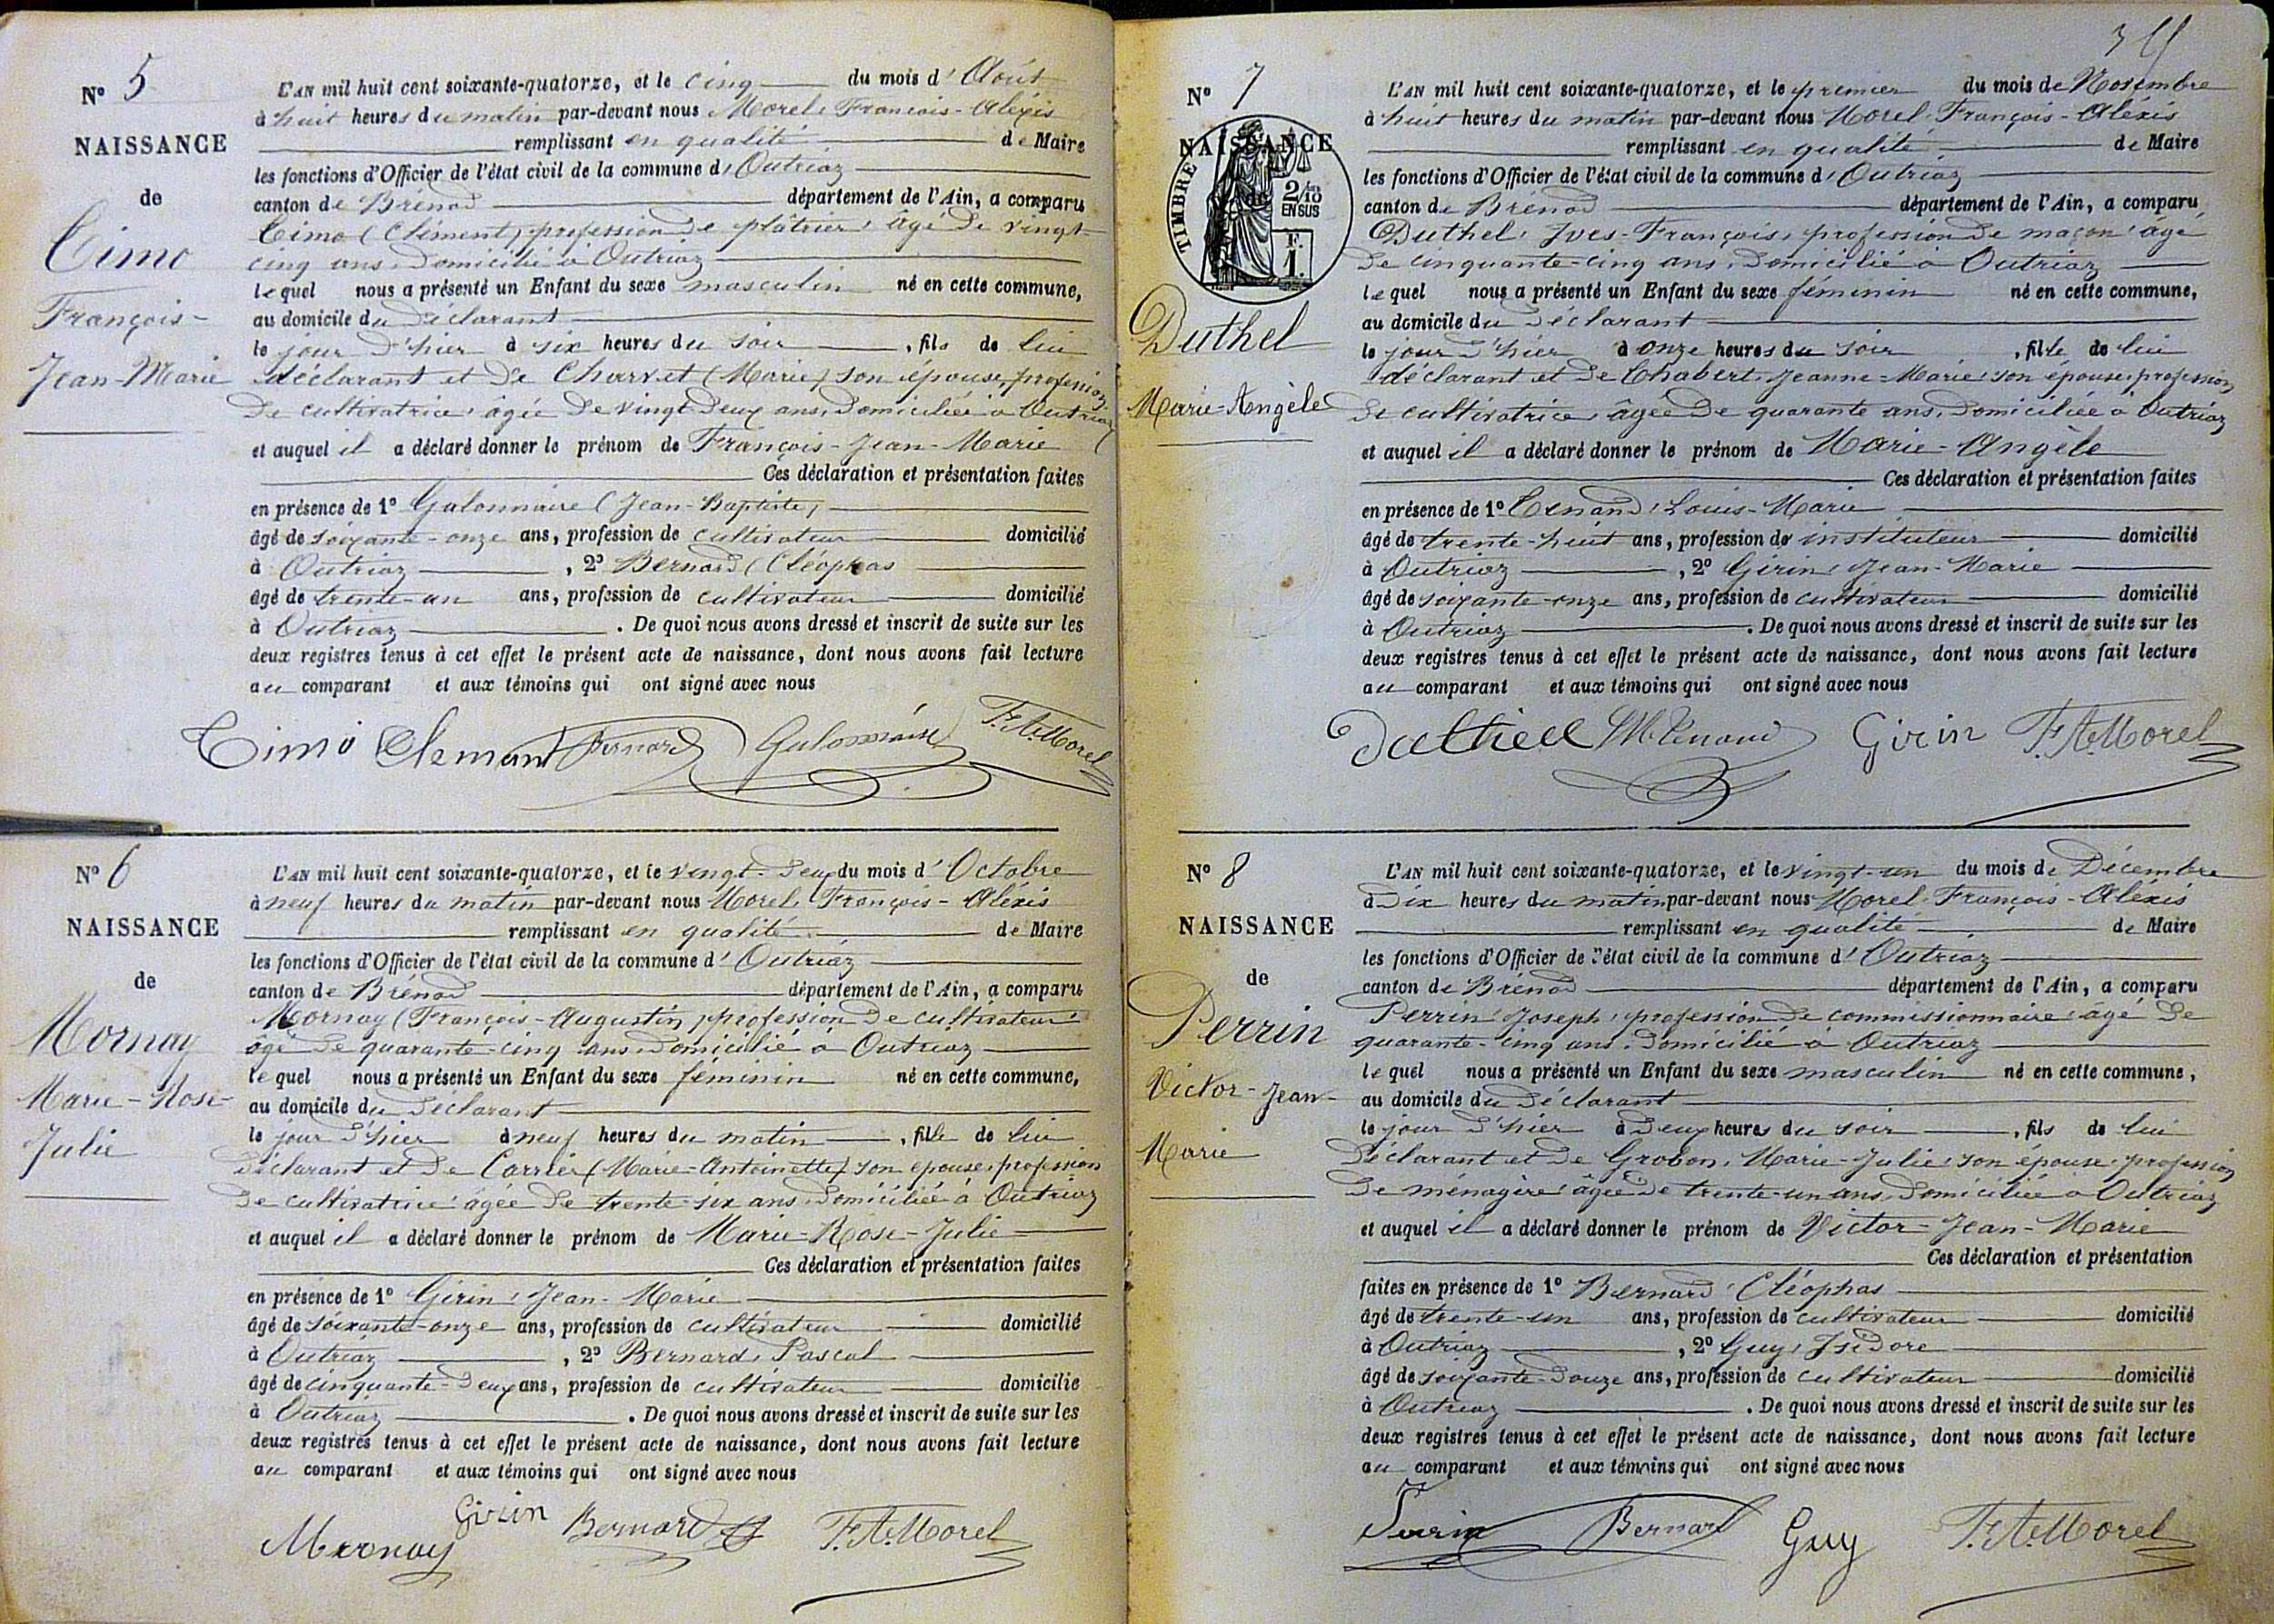 N° 5
NAISSANCE
de
Cimo
François-
Jean-Marie
L'AN mil huit cent soixante-quatorze, et le cinq du mois d'Août
à huit heures du matin par-devant nous Morel, François-Aléxis
remplissant en qualité de Maire
les fonctions d'Officier de l'état civil de la commune d'Outriaz
canton de Brénod département de l'Ain, a comparu
Cimo (Clément) profession de plâtrier, âgé de vingt-
cinq ans, domicilié à Outriaz
lequel nous a présenté un Enfant du sexe masculin né en cette commune,
au domicile du déclarant
le jour d'hier à six heures du soir, fils de lui
déclarant et de Charvet (Marie) son épouse, profession
de cultivatrice, âgée de vingt-deux ans, domiciliée à Outriaz
et auquel il a déclaré donner le prénom de François-Jean-Marie
Ces déclaration et présentation faites
en présence de 1° Galonnaire (Jean-Baptiste)
âgé de soixante-onze ans, profession de cultivateur domicilié
à Outriaz, 2° Bernard (Cléophas
âgé de trente-un ans, profession de cultivateur domicilié
à Outriaz. De quoi nous avons dressé et inscrit de suite sur les
deux registres tenus à cet effet le présent acte de naissance, dont nous avons fait lecture
au comparant et aux témoins qui ont signé avec nous
Cimo Clemant Bernard Galonnaire F. A. Morel
N° 6
NAISSANCE
de
Mornay
Marie-Rose-
Julie
L'AN mil huit cent soixante-quatorze, et le vingt-deux du mois d'Octobre
à neuf heures du matin par-devant nous Morel, François-Aléxis
remplissant en qualité de Maire
les fonctions d'Officier de l'état civil de la commune d'Outriaz
canton de Brénod département de l'Ain, a comparu
Mornay (François-Augustin) profession de cultivateur,
âgé de quarante-cinq ans, domicilié à Outriaz
lequel nous a présenté un Enfant du sexe féminin né en cette commune,
au domicile du déclarant
le jour d'hier à neuf heures du matin, fille de lui
déclarant et de Carrier (Marie-Antoinette) son épouse, profession
de cultivatrice, âgée de trente-six ans, domiciliée à Outriaz
et auquel il a déclaré donner le prénom de Marie-Rose-Julie
Ces déclaration et présentation faites
en présence de 1° Girin, Jean-Marie
âgé de soixante-onze ans, profession de cultivateur domicilié
à Outriaz, 2° Bernard, Pascal
âgé de cinquante-deux ans, profession de cultivateur domicilié
à Outriaz. De quoi nous avons dressé et inscrit de suite sur les
deux registres tenus à cet effet le présent acte de naissance, dont nous avons fait lecture
au comparant et aux témoins qui ont signé avec nous
Mornay Girin Bernard F. A. Morel
N° 7
NAISSANCE
TIMBRE
2/10
EN SUS
F.
1.
Duthel
Marie-Angèle
L'AN mil huit cent soixante-quatorze, et le premier du mois de Novembre
à huit heures du matin par-devant nous Morel, François-Aléxis
remplissant en qualité de Maire
les fonctions d'Officier de l'état civil de la commune d'Outriaz
canton de Brénod département de l'Ain, a comparu
Duthel, Yves-François, profession de maçon, âgé
de cinquante-cinq ans, domicilié à Outriaz
lequel nous a présenté un Enfant du sexe féminin né en cette commune,
au domicile du déclarant
le jour d'hier à onze heures du soir, fille de lui
déclarant et de Chabert, Jeanne-Marie, son épouse, profession
de cultivatrice, âgée de quarante ans, domiciliée à Outriaz
et auquel il a déclaré donner le prénom de Marie-Angèle
Ces déclaration et présentation faites
en présence de 1° Louis-Marie
âgé de trente-huit ans, profession de instituteur domicilié
à Outriaz, 2° Girin, Jean-Marie
âgé de soixante-onze ans, profession de cultivateur domicilié
à Outriaz. De quoi nous avons dressé et inscrit de suite sur les
deux registres tenus à cet effet le présent acte de naissance, dont nous avons fait lecture
au comparant et aux témoins qui ont signé avec nous
Duthel Girin F. A. Morel
N° 8
NAISSANCE
de
Perrin
Victor-Jean-
Marie
L'AN mil huit cent soixante-quatorze, et le vingt-un du mois de Décembre
à dix heures du matin par-devant nous Morel, François-Aléxis
remplissant en qualité de Maire
les fonctions d'Officier de l'état civil de la commune d'Outriaz
canton de Brénod département de l'Ain, a comparu
Perrin, Joseph, profession de commissionnaire, âgé de
quarante-cinq ans, domicilié à Outriaz
lequel nous a présenté un Enfant du sexe masculin né en cette commune,
au domicile du déclarant
le jour d'hier à deux heures du soir, fils de lui
déclarant et de Grobon, Marie-Julie, son épouse, profession
de ménagère, âgée de trente-un ans, domiciliée à Outriaz
et auquel il a déclaré donner le prénom de Victor-Jean-Marie
Ces déclaration et présentation
faites en présence de 1° Bernard, Cléophas
âgé de trente-un ans, profession de cultivateur domicilié
à Outriaz, 2° Guy, Isidore
âgé de soixante-douze ans, profession de cultivateur domicilié
à Outriaz. De quoi nous avons dressé et inscrit de suite sur les
deux registres tenus à cet effet le présent acte de naissance, dont nous avons fait lecture
au comparant et aux témoins qui ont signé avec nous
Perrin Bernard Guy F. A. Morel